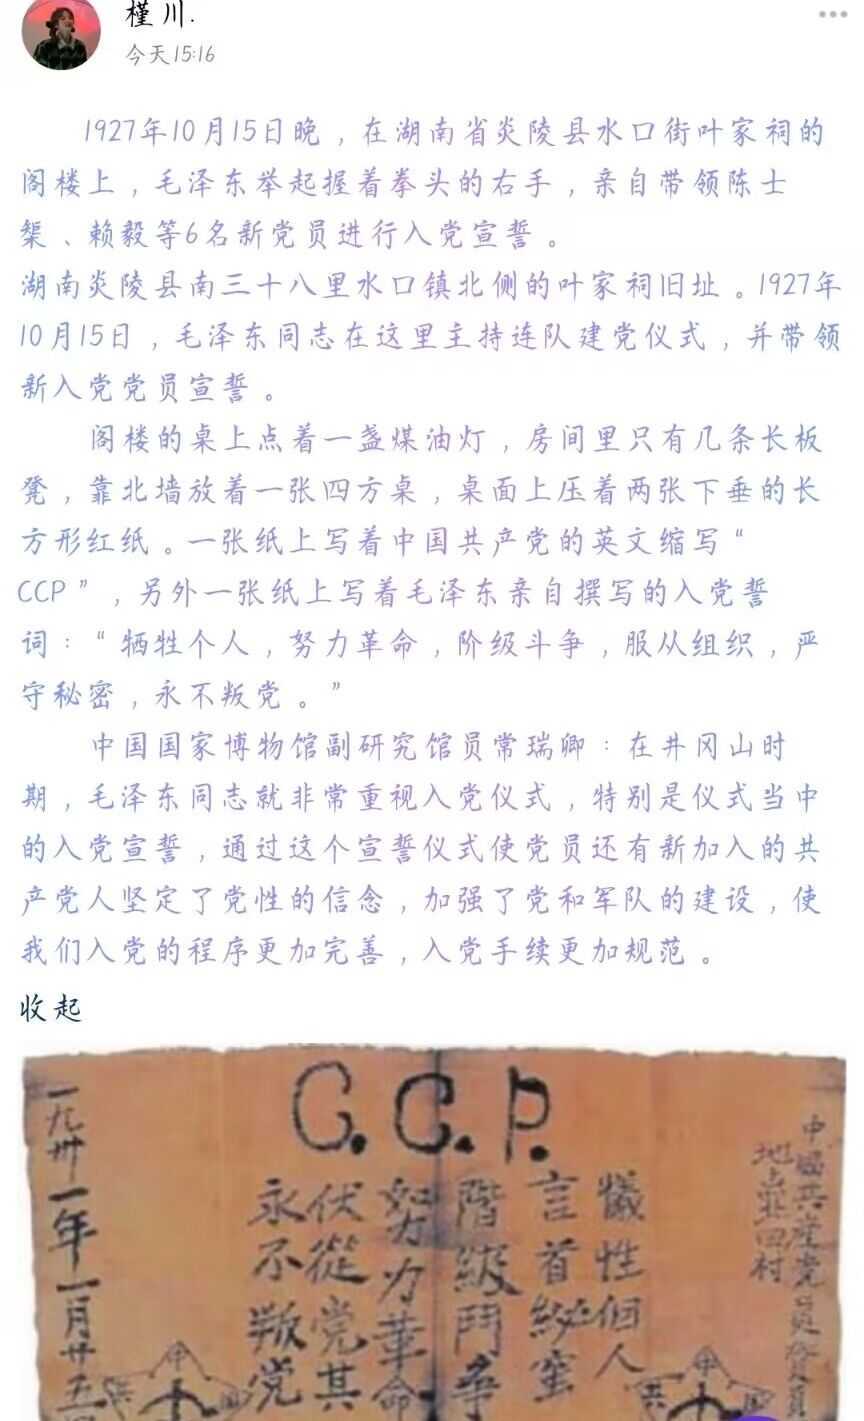 槿川.
今天15:16
1927年10月15日晚，在湖南省炎陵县水口街叶家祠的
阁楼上，毛泽东举起握着拳头的右手，亲自带领陈士
榘、赖毅等6名新党员进行入党宣誓。
湖南炎陵县南三十八里水口镇北侧的叶家祠旧址。1927年
10月15日，毛泽东同志在这里主持连队建党仪式，并带领
新入党党员宣誓。
阁楼的桌上点着一盏煤油灯，房间里只有几条长板
凳，靠北墙放着一张四方桌，桌面上压着两张下垂的长
方形红纸。一张纸上写着中国共产党的英文缩写“
CCP”，另外一张纸上写着毛泽东亲自撰写的入党誓
词：“牺牲个人，努力革命，阶级斗争，服从组织，严
守秘密，永不叛党。”
中国国家博物馆副研究馆员常瑞卿：在井冈山时
期，毛泽东同志就非常重视入党仪式，特别是仪式当中
的入党宣誓，通过这个宣誓仪式使党员还有新加入的共
产党人坚定了党性的信念，加强了党和军队的建设，使
我们入党的程序更加完善，入党手续更加规范。
收起
C.C.P.
中國共產党員
地点北田村
犠牲個人
言首秘蜜
階級鬥争
努力革命
伏從党其
永不叛党
一九卅一年一月廿五
中
共
國
中
共
國